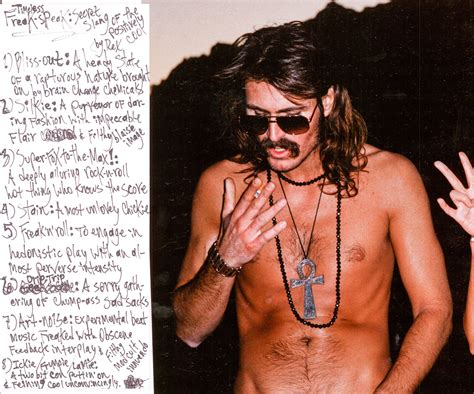 Timeless
Freak-Speak: Secret
Slang of the
positively
Cool
by Rex
1) Bliss-out: A heavy State
of a rapturous nature brought
on by brain change chemicals
2) Silkie: A purveyor of dar-
ing fashion with impeccable
Flair & Filthy
image
3) SuperFox To the Max!:
A deeply alluring rock-n-roll
hot thing who knows the score
4) Stain: A most unlovely Chickie
5) Freak'n'roll: To engage in
hedonistic play with an al-
most perverse intensity
6) Drip Trip: A sorry gath-
ering of chump-ass sad sacks
7) Art-noise: Experimental beat
music Freaked with Obscene
Feedback interplay &
Filthy
8) Ickie/ Lamie:
A two bit con puttin' on
& Fething cool unconvincingly.